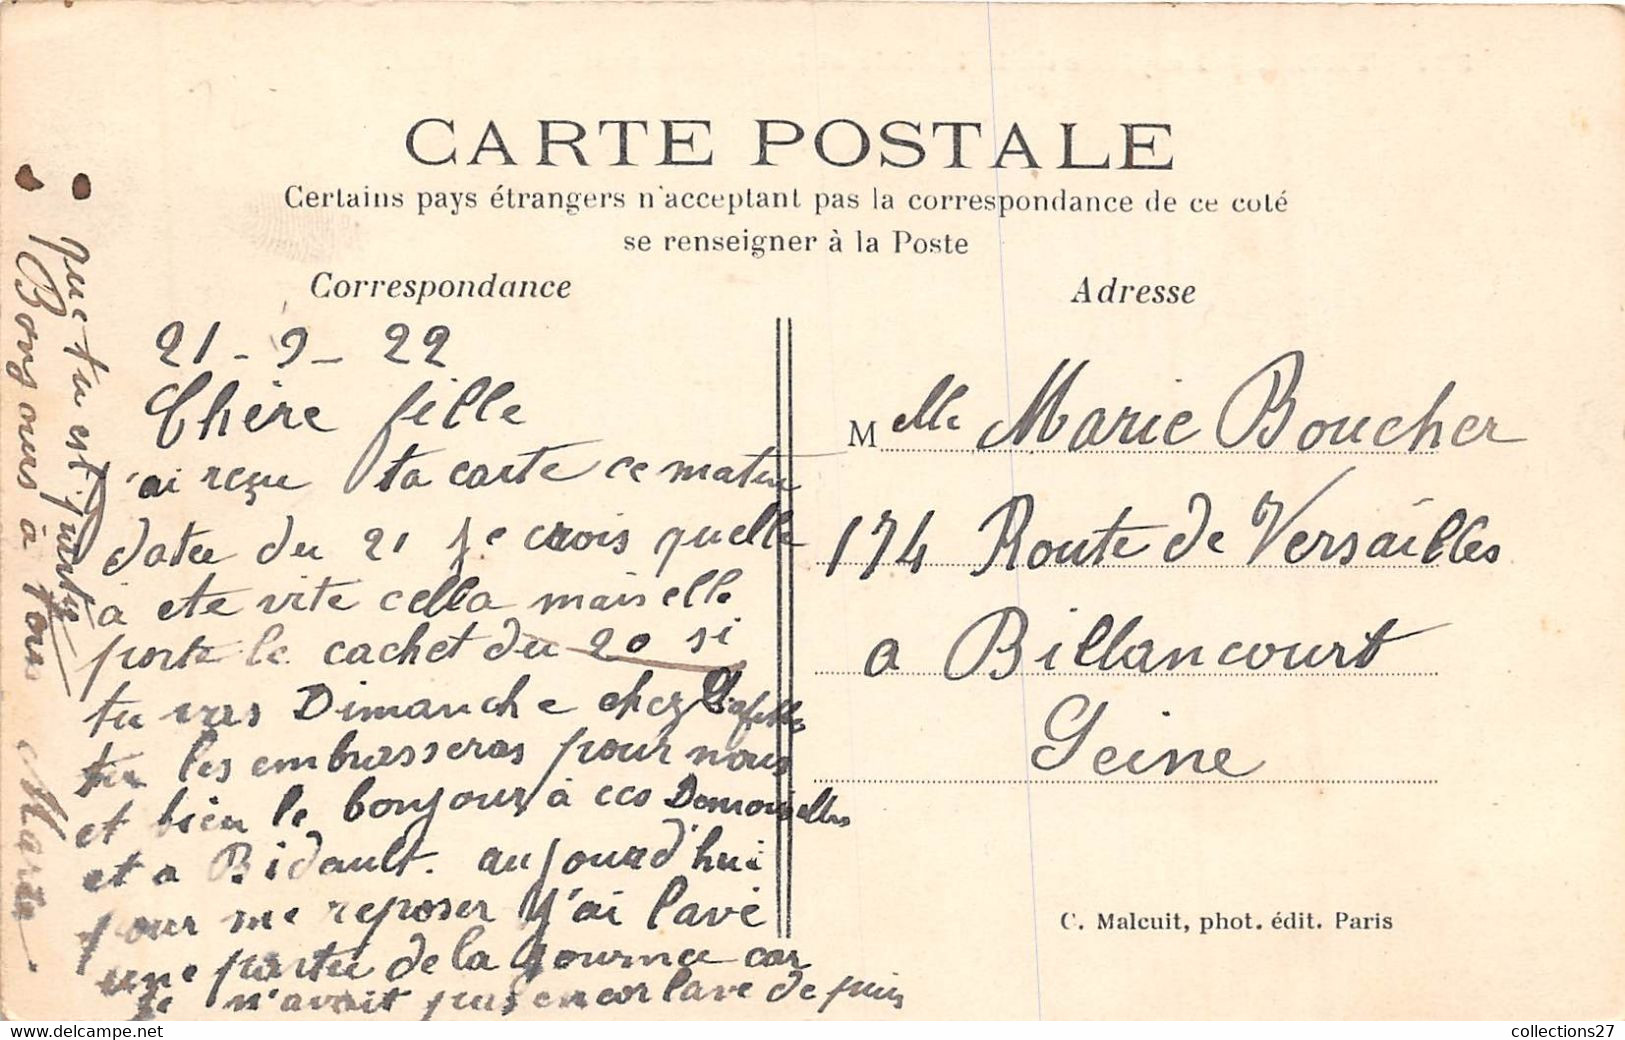 CARTE POSTALE
Certains pays étrangers n'acceptant pas la correspondance de ce coté
se renseigner à la Poste
Correspondance
21 - 9 - 22
Chère fille
J'ai reçu ta carte ce matin
datee du 21 je crois quelle
à ete vite cella mais elle
porte le cachet du 20 si
tu vas Dimanche chez
tu les embrasseras pour nous
et bien le bonjour à ces Demoiselles
et a Bidault. aujourd'hui
pour me reposer j'ai lavé
une partie de la journee car
je n'avait pas encor lavé depuis
que tu est partie
Bonjours à tous Marie
Adresse
Melle Marie Boucher
174 Route de Versailles
a Billancourt
Seine
C. Malcuit, phot. édit. Paris
www.delcampe.net
collections27